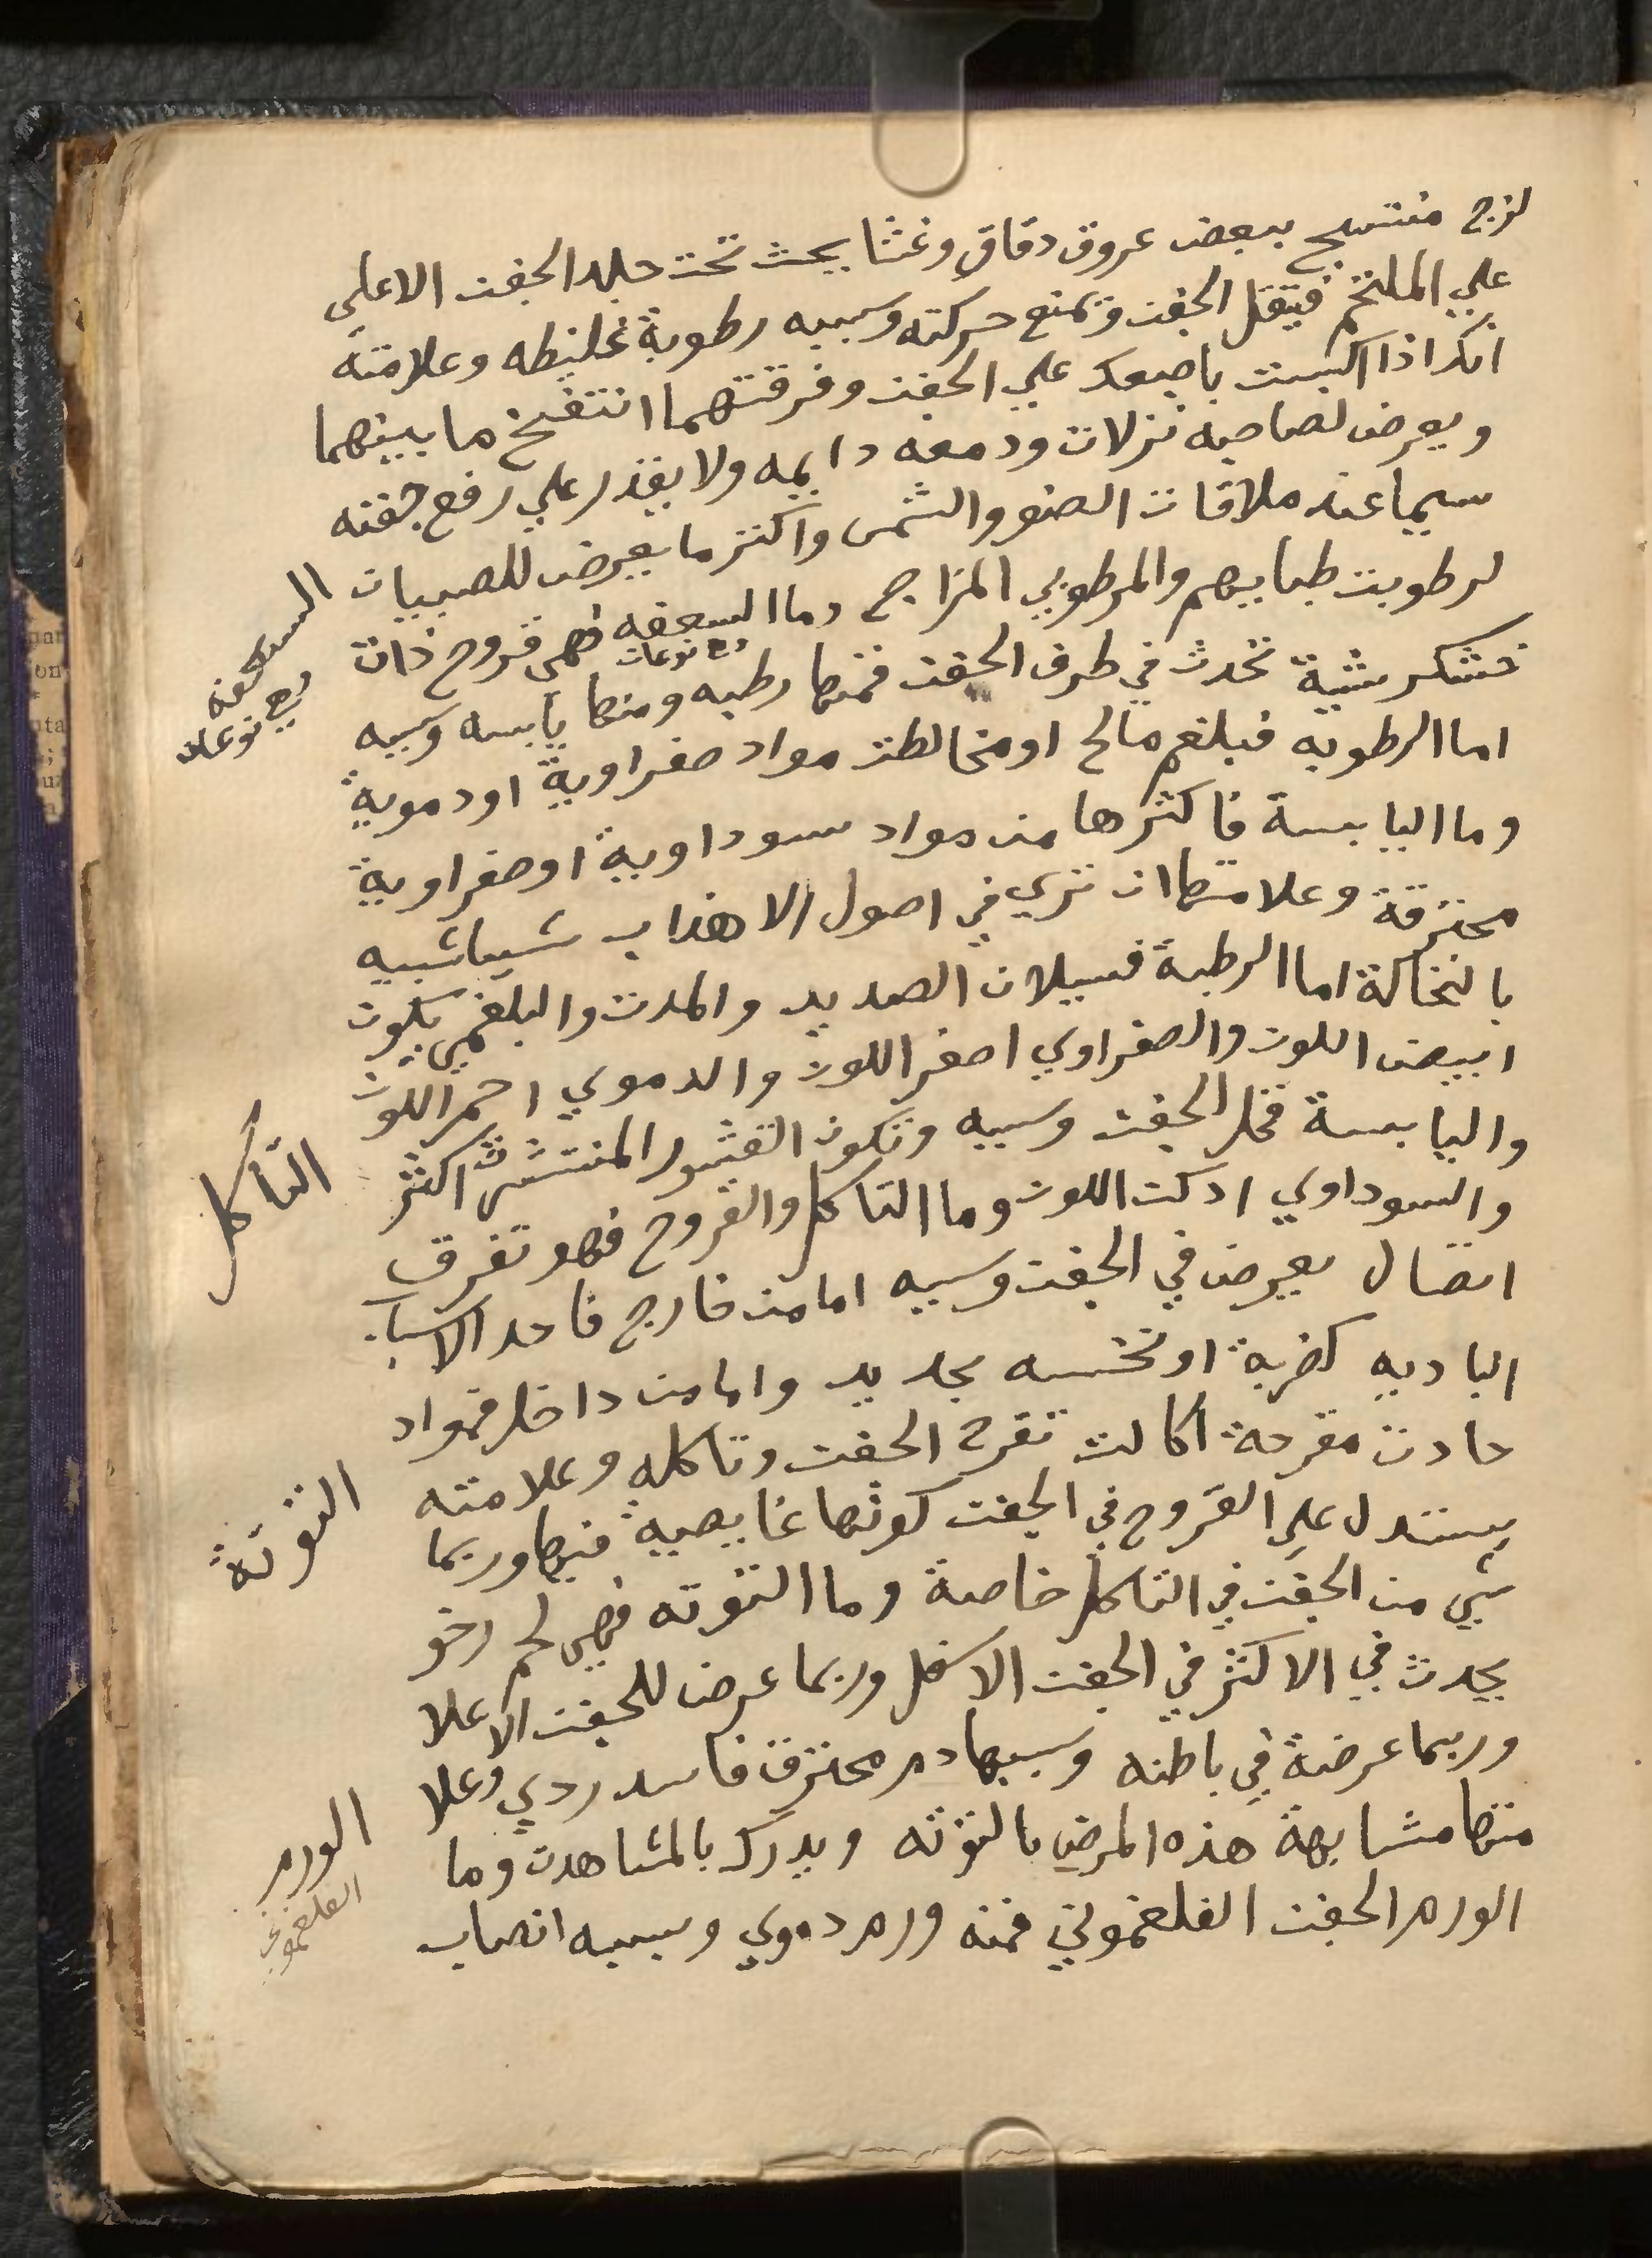 لزج منتسج ببعض عروق دقاق وغشا يحث تحت جلد الجفن الاعلي
علي الملتحم فيتقل الجفن وتمنع حركته وسببه رطوبة غليظه وعلامته
انك اذا اكبست باصبعك علي الجفن وفرقتهما انتفخ ما بينهما
ويعرض لصاحبه نزلات ودمعه دايمه ولا يقدر علي رفع جفنه
سيما عند ملاقات الضو والشمس واكثر ما يعرض للصبيان
لرطوبت طبايهم والمرطوبي المزاج وما السعفه فهي قروح ذات
وع نوعان
السعفه
وع نوعان
خشكريشية تحدث في طرف الجفن فمنها رطبه ومنها يابسه وسببه
اما الرطوبه فبلغم مالح او مخالطت مواد صفراوية او دموية
وما اليابسة فاكثرها من مواد سوداوية او صفراوية
محترقة وعلامتها ان تري في اصول الاهداب شيا شبيه
بالنخالة اما الرطبة فسيلان الصديد والمدت والبلغمي يكون
ابيض اللون والصفراوي اصفر اللون والدموي احمر اللون
واليابسة فخلر الجفن وسببه وتكون القشور المنتشرت اكثر
والسوداوي ادكت اللون وما التاكل والقروح فهو تفرق
التأكل
اتصال يعرض في الجفن وسببه اما من خارج فاحد الاسباب
الباديه كضربة او نخسه بحديد واما من داخل فمواد
حادت مقرحة اكالت تقرح الجفن وتاكله وعلامته
يستدل علي القروح في الجفن كونها غايصية فيها وربما
التوتة
شي من الجفن في التاكل خاصة وما التوته فهي لحم رخو
يحدث في الاكثر في الجفن الاسفل وربما عرض للجفن الاعلا
وربما عرضة في باطنه وسببها دم محترق فاسد ردي وعلا
متها مشابهة هذه المرض بالتوته ويدرك بالمشاهدت وما
الورم الجفن الفلغموني فمنه ورم دموي وسببه انصباب
الورم
الفلغموني